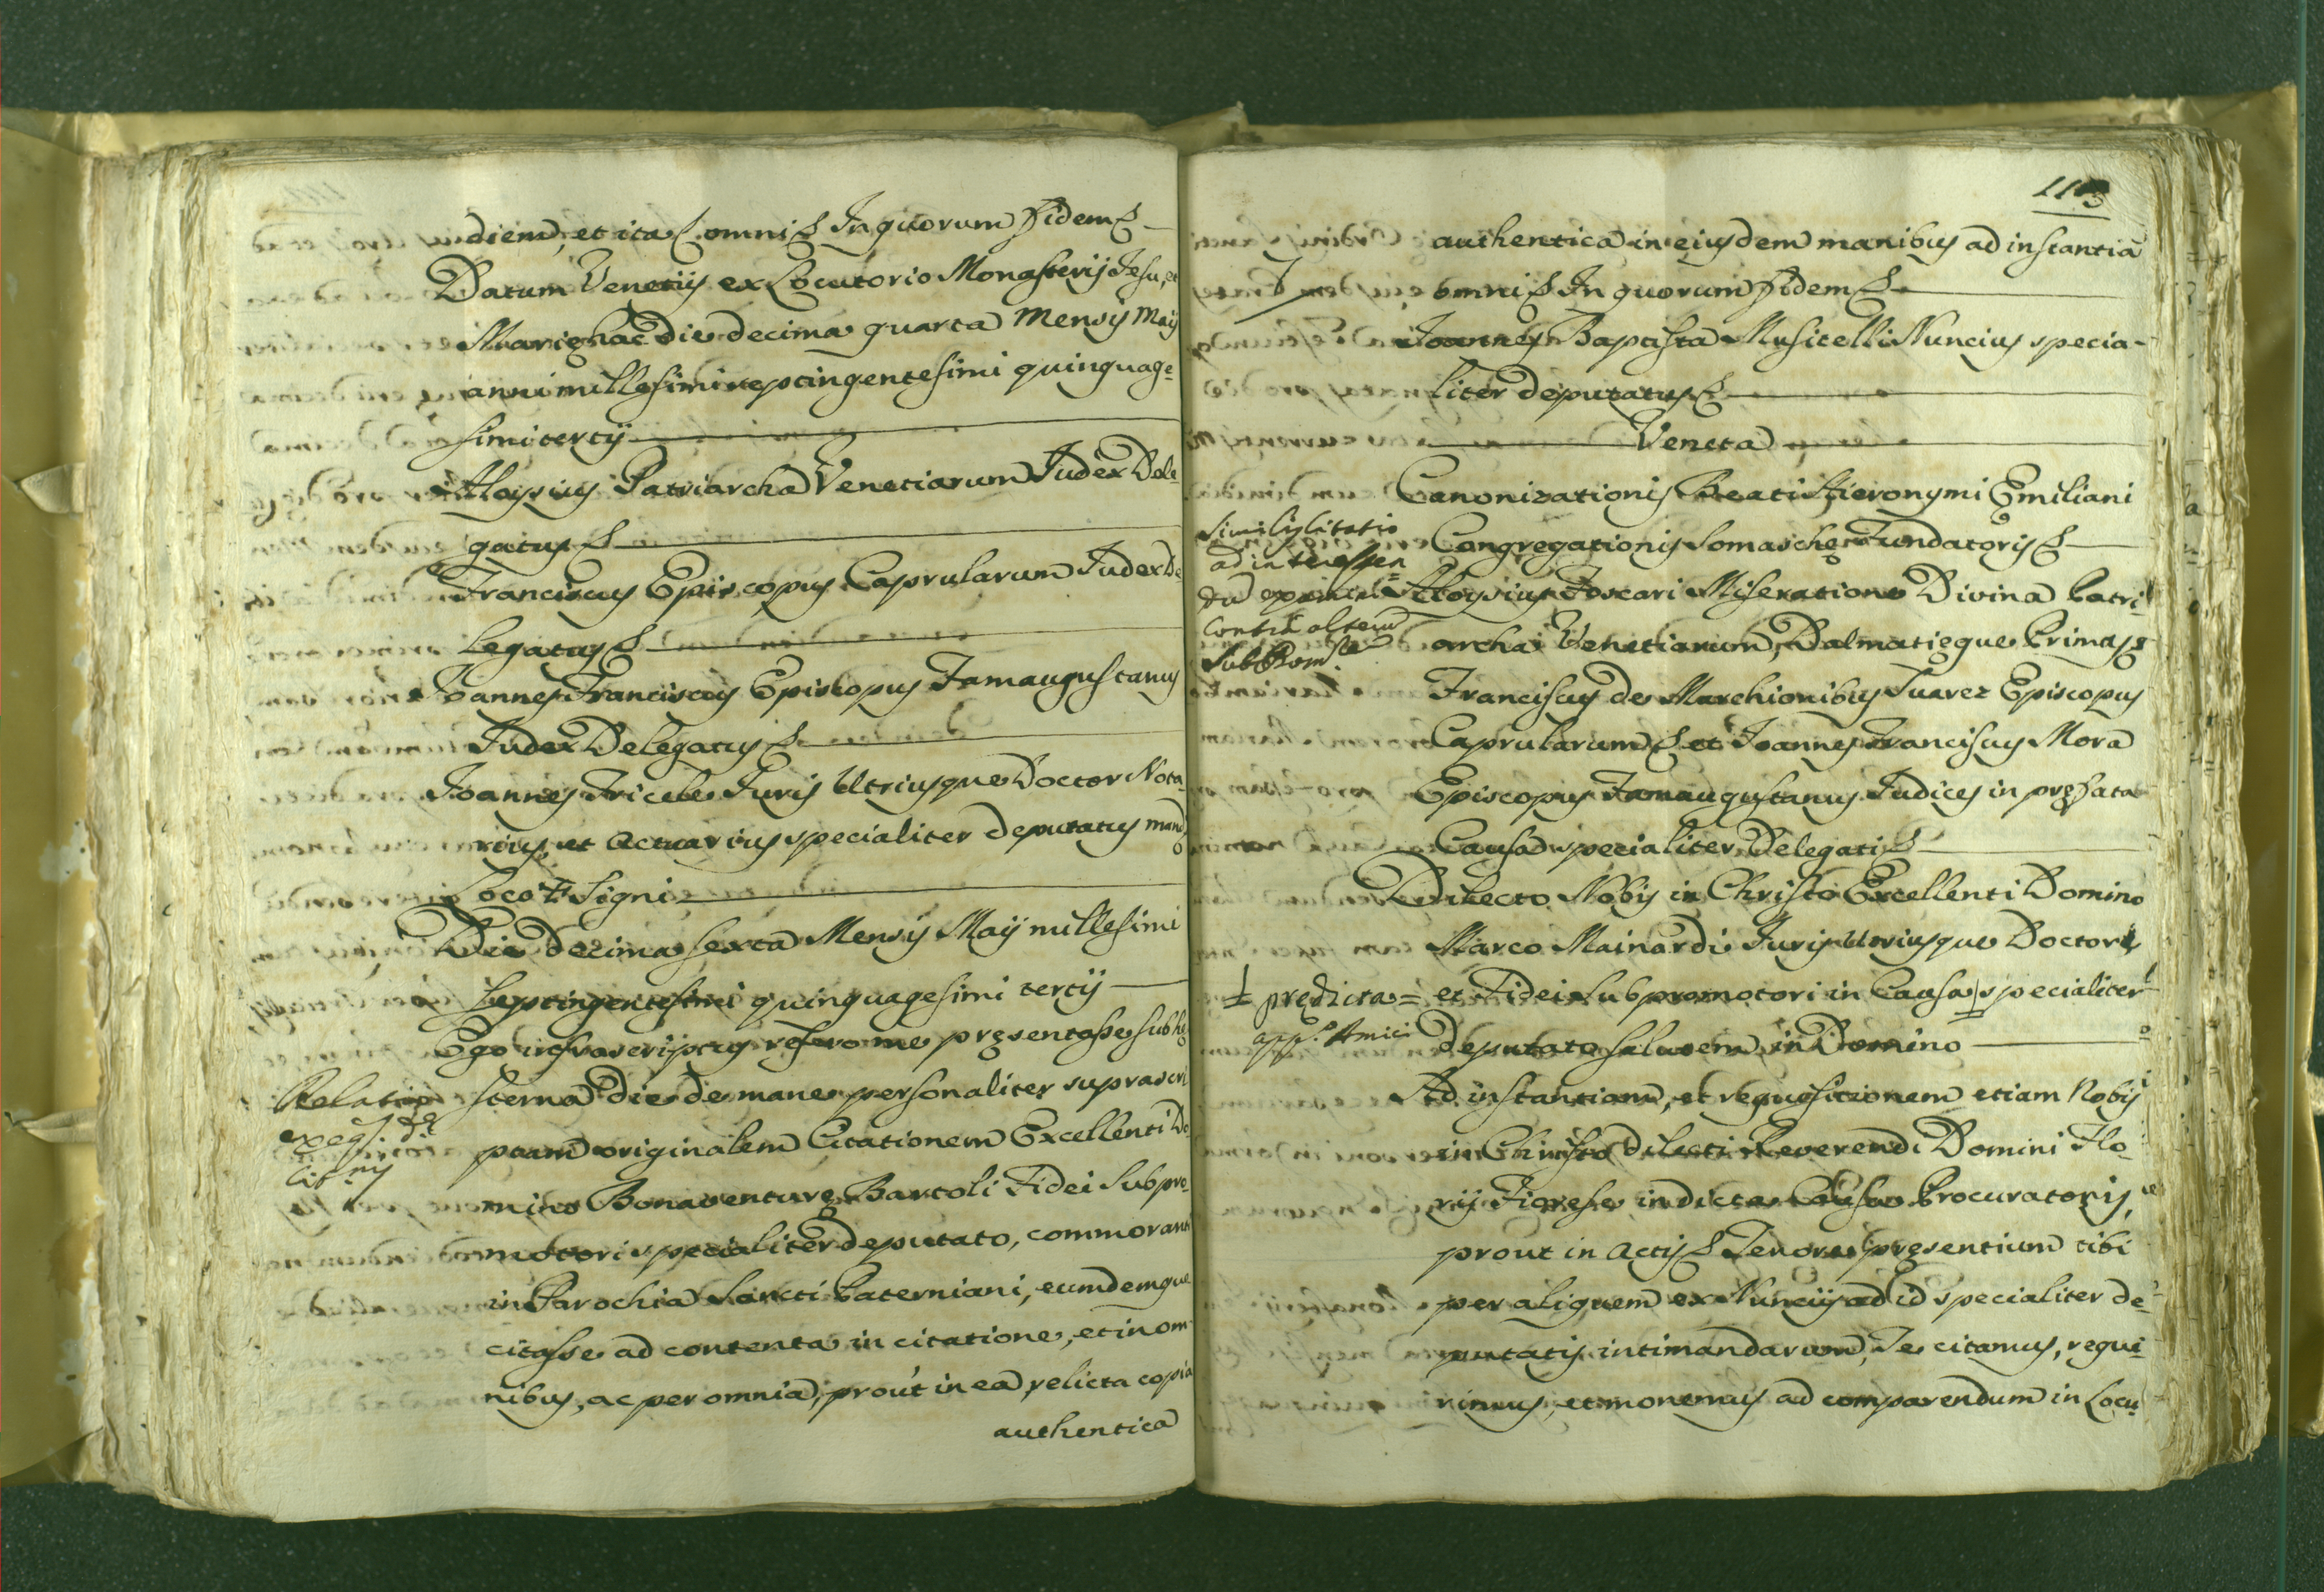 diem, et ita omni In quorum Fidem
Datum Venetijs ex Locutorio Monasterij Jesu, et
Marię hac die decima quarta Mensis Maij
anni millesimi septingentesimi quinquage=
simi tertij
Aloysius Patriarcha Venetiarum Judex Dele
gatus
Franciscus Episcopus Caprularum Judex De
legatus
Joannes Franciscus Episcopus Famaugustanus
Judex Delegatus
Joannes Juris Utriusque Doctor Nota
rius, et Actuarius specialiter deputatus mand.o
Loco + Signi
Die decima sexta Mensis Maij millesimi
septingentesimi quinquagesimi tertij
Ego infrascriptus refero me pręsentasse sub hę
sterna die de mane personaliter suprascri
Relatio
ptam originalem Citationem Excellenti Do
mino Bonaventurę Bartoli Fidei Subpro=
motori specialiter deputato, commoranti
in Parochia Sancti Paterniani, eumdemque
citasse ad contenta in citatione, et in om
nibus, ac per omnia, prout in ea, relicta copia
authentica
113
authentica in eiusdem manibus ad instantiã
omni In quorum Fidem
Joannes Baptista Musitelli Nuncius specia=
liter deputatus
Veneta
Canonizationis Beati Hieronymi Emiliani
Congregationis Somaschę Fundatoris
Similis citatio
ad interessen
contra alterũ
Aloysius Foscari Miseratione Divina Patri=
archa Venetiarum, Dalmatięque Primas
Franciscus de Marchionibus Suarez Episcopus
Caprularum et Joannes Franciscus Mora
Episcopus Famaugustanus Judices in pręfata
Causa specialiter Delegati
Dilecto Nobis in Christo Excellenti Domino
Marco Mainardi Juris Utriusque Doctori,
et Fidei Subpromotori in Causa specialiter
prędicta =
deputato salutem in Domino
Ad instantiam, et requisitionem etiam Nobis
in Christo dilecti Reverendi Domini Flo=
rij Fiorese in dicta Causa Procuratoris,
prout in Actis Tenore pręsentium tibi
per aliquem ex Nuncijs ad id specialiter de=
putatis intimandarum, Te citamus, requi=
rimus, et monemus ad comparendum in Locu=